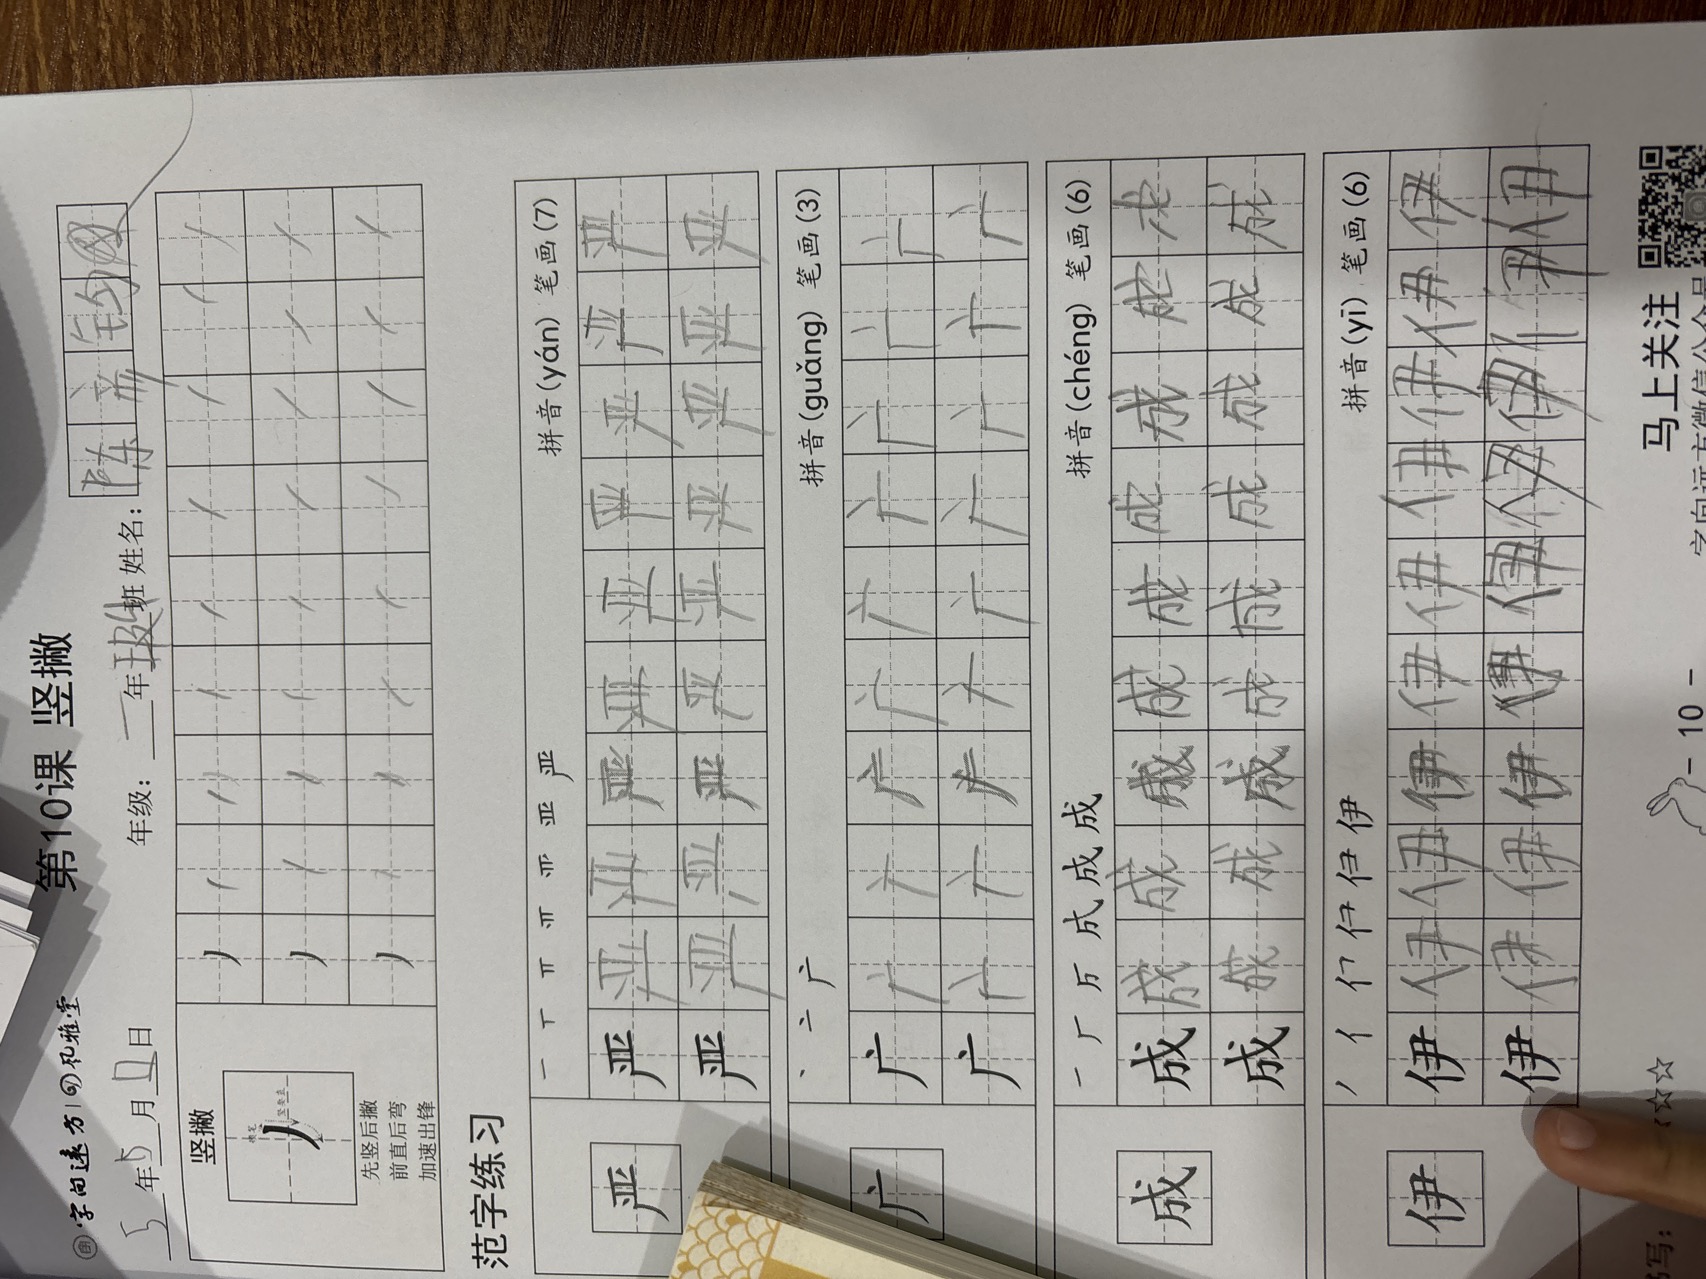 字向远方 孔雅堂
第10课 竖撇
5年5月
年级：一年
班 姓名：陈
竖撇
先竖后撇
前直后弯
加速出锋
范字练习
拼音(yán) 笔画(7)
一 丅 丌 亚 严
严 严 严 严 严 严 严 严 严 严 严
严 严 严 严 严 严 严 严 严 严
拼音(guǎng) 笔画(3)
丶 亠 广
广 广 广 广 广 广 广 广 广 广 广
广 广 广 广 广 广 广 广 广 广
拼音(chéng) 笔画(6)
一 厂 成 成 成
成 成 成 成 成 成 成 成 成 成 成
成 成 成 成 成 成 成 成 成 成
拼音(yī) 笔画(6)
丿 亻 伊
伊 伊 伊 伊 伊 伊 伊 伊 伊 伊 伊
伊 伊 伊 伊 伊 伊 伊 伊 伊 伊
书写：☆☆☆
- 10 -
马上关注
字向远方微信公众号